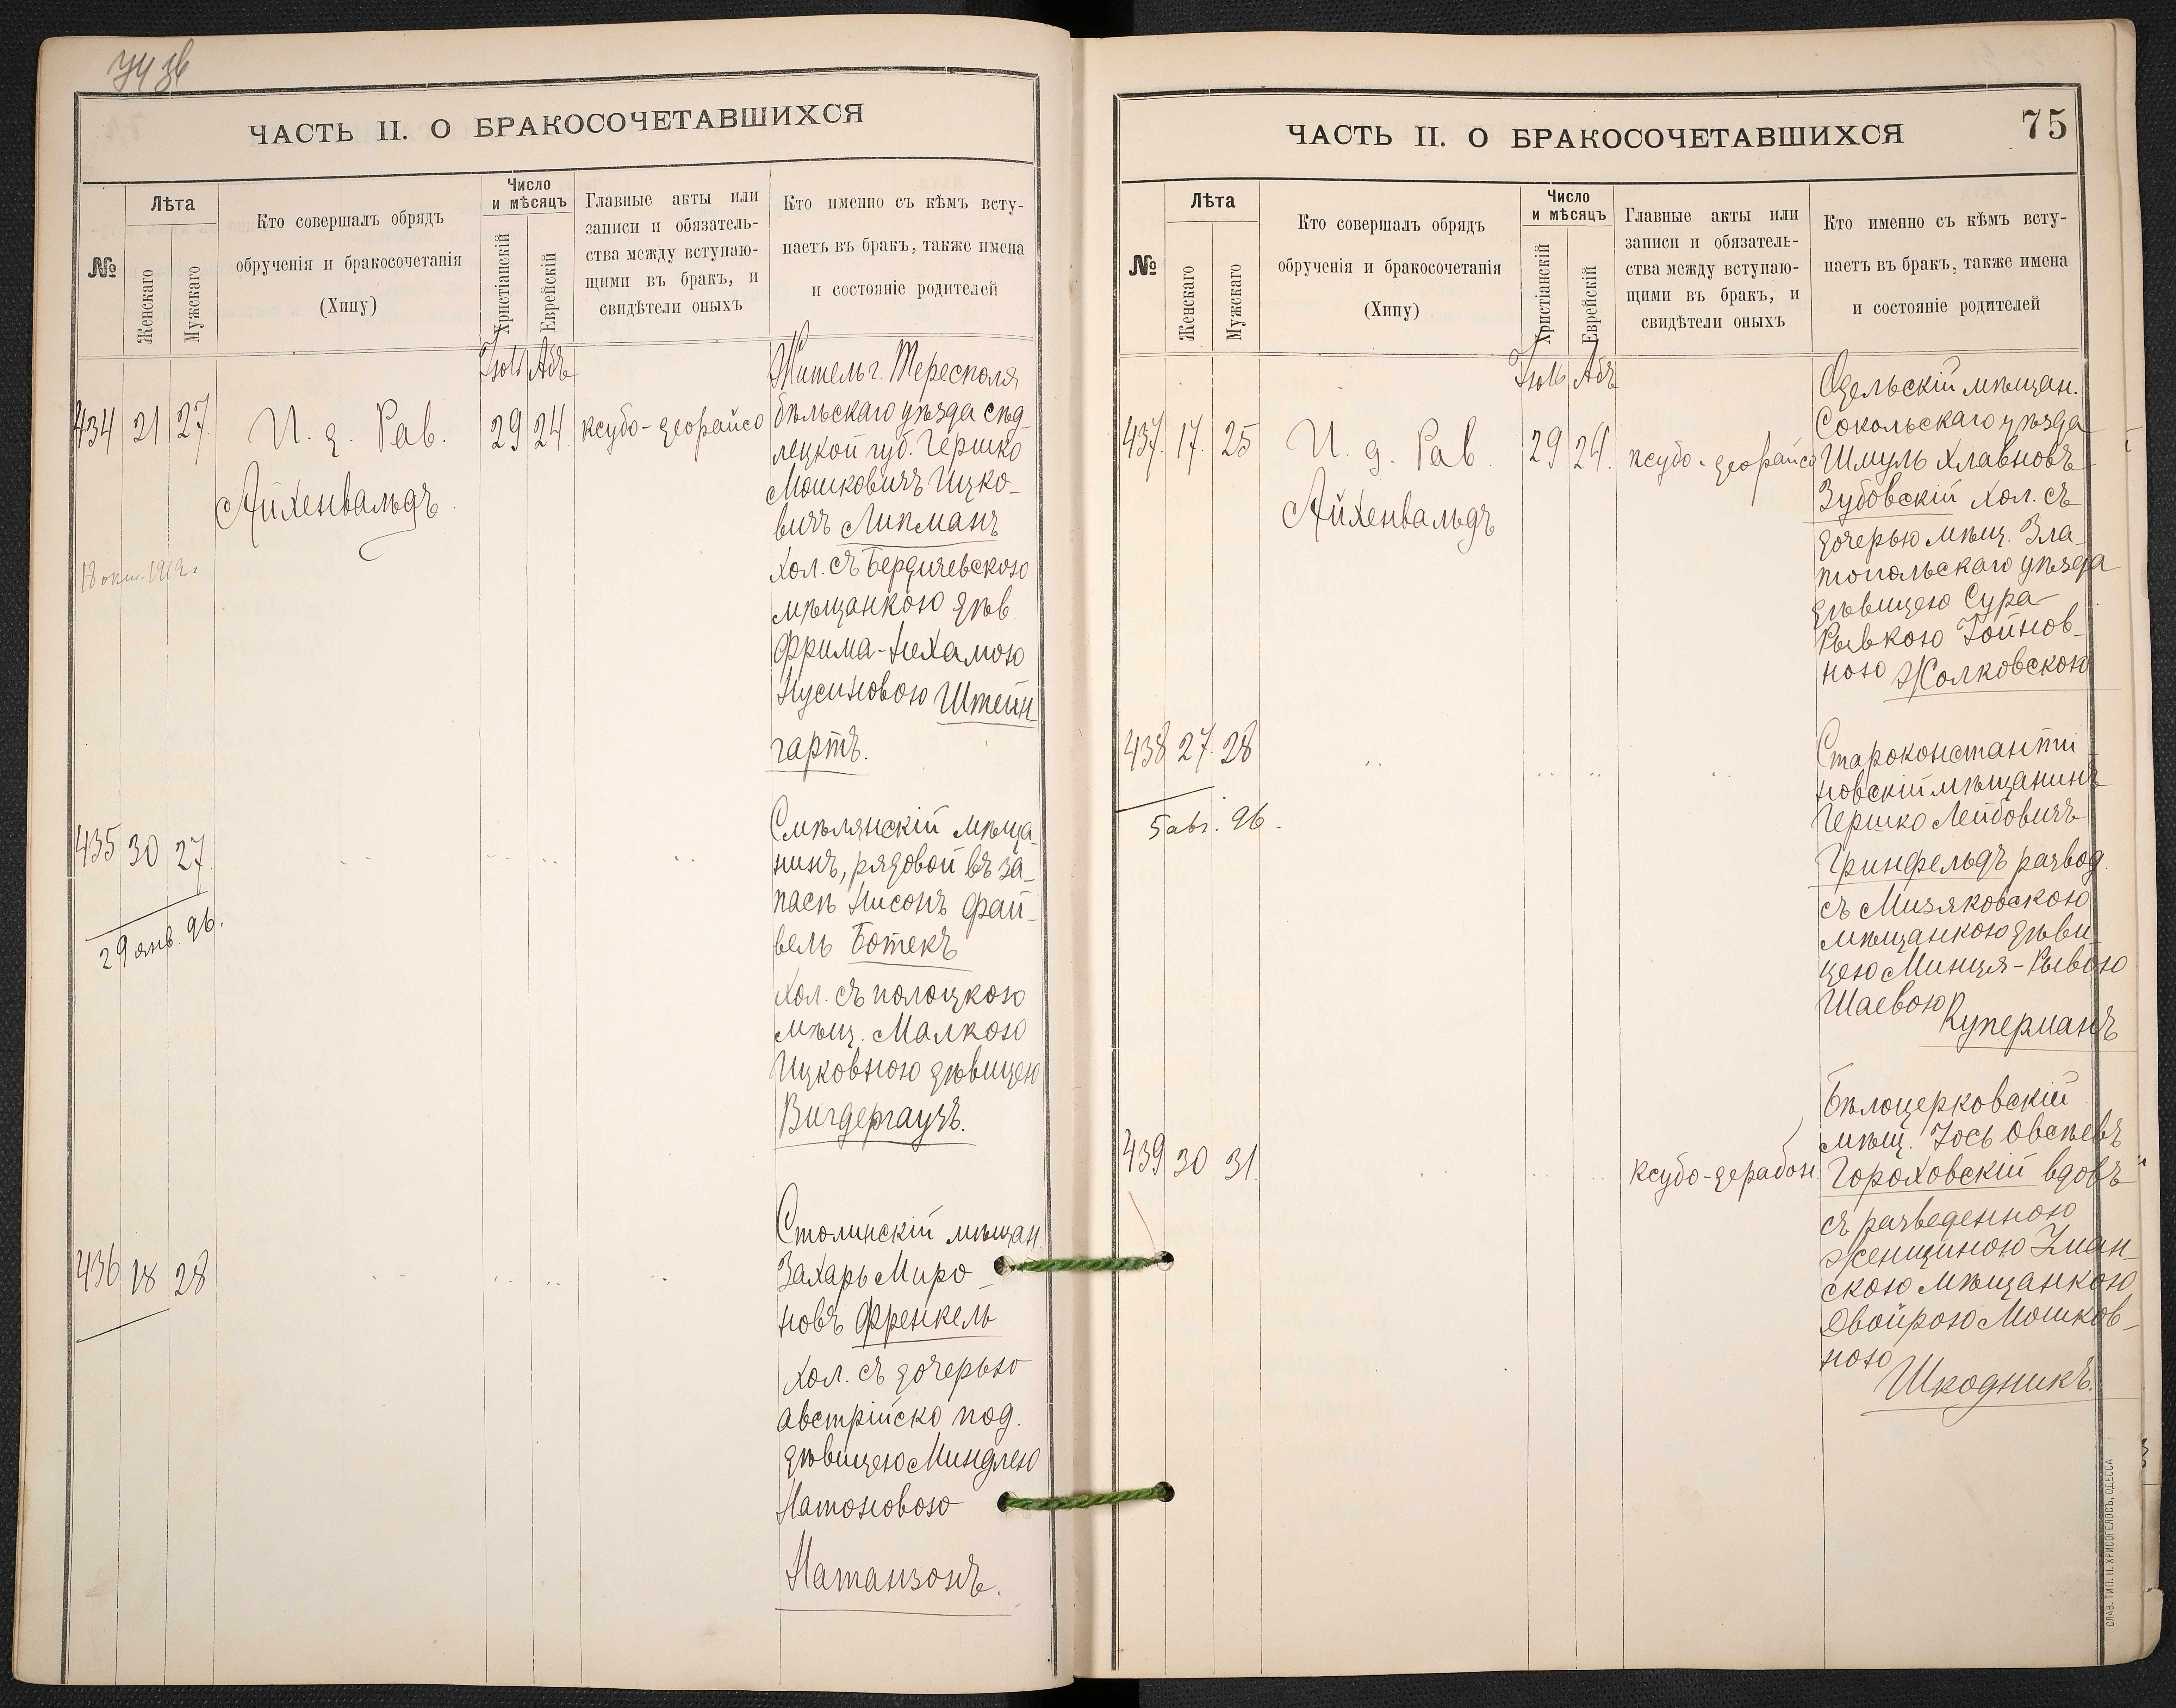 74 зв
ЧАСТЬ II. О БРАКОСОЧЕТАВШИХСЯ
№
Лѣта
Женскаго
Мужскаго
Кто совершалъ обрядъ
обрученія и бракосочетанія
(Хипу)
Число
и мѣсяцъ
Христіанскій
Еврейскій
Главные акты или
записи и обязатель-
ства между вступаю-
щими въ бракъ, и
свидѣтели оныхъ
Кто именно съ кѣмъ всту-
паетъ въ бракъ, также имена
и состояніе родителей
Іюль Абъ
434 21 27.
И. д. Рав.
Айхенвальдъ.
29 24.
ксубо-деорайсо
Житель г. Тересполя
бѣльскаго уѣзда сѣд-
лецкой губ. Гершко
Мошковичъ Ицко-
вичъ Липманъ
хол. съ Бердичевскою
мѣщанкою дѣв.
Фрима-Нехамою
Нусиновою Штейн-
гартъ.
18 окт. 1912 г.
435 30 27.
29 янв. 96.
Смѣлянскій мѣща-
нинъ, рядовой въ за-
пасѣ Нисонъ Фай-
вель Ботекъ
хол. съ полоцкою
мѣщ. Малкою
Ицковною дѣвицею
Вигдергаузъ.
436 18 28
Столинскій мѣщан.
Захарь Миро-
новъ Френкель
хол. съ дочерью
австрійско под.
дѣвицею Миндлею
Натоновою
Натанзонъ.
75
ЧАСТЬ II. О БРАКОСОЧЕТАВШИХСЯ
№
Лѣта
Женскаго
Мужскаго
Кто совершалъ обрядъ
обрученія и бракосочетанія
(Хипу)
Число
и мѣсяцъ
Христіанскій
Еврейскій
Главные акты или
записи и обязатель-
ства между вступаю-
щими въ бракъ, и
свидѣтели оныхъ
Кто именно съ кѣмъ всту-
паетъ въ бракъ, также имена
и состояніе родителей
Іюль Абъ
437. 17. 25
И. д. Рав.
Айхенвальдъ
29 24.
ксубо-деорайсо
Одельскій мѣщан.
Сокольскаго уѣзда
Шмуль Хлавновъ
Зубовскій хол. съ
дочерью мѣщ. Зла-
топольскаго уѣзда
дѣвицею Сура-
Рывкою Іойнов-
ною Жолковскою
438 27. 28
5 авг. 96.
Староконстанти-
новскій мѣщанинъ
Гершко Лейбовичъ
Гринфельдъ развод.
съ Мизяковскою
мѣщанкою дѣви-
цею Минця-Рывою
Шаевою Куперманъ
439 30 31.
ксубо-дерабон.
Бѣлоцерковскій
мѣщ. Іось Овсѣевъ
Гороховскій вдовъ
съ разведенною
женщиною Уман-
скою мѣщанкою
Двойрою Мошков-
ною
Шкодникъ.
СЛАВ. ТИП. Н. ХРИСОГЕЛОСЪ, ОДЕССА